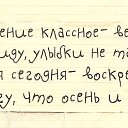 ение классное- ве
иду, улыбки не та
я сегодня- воскре
у, что осень и